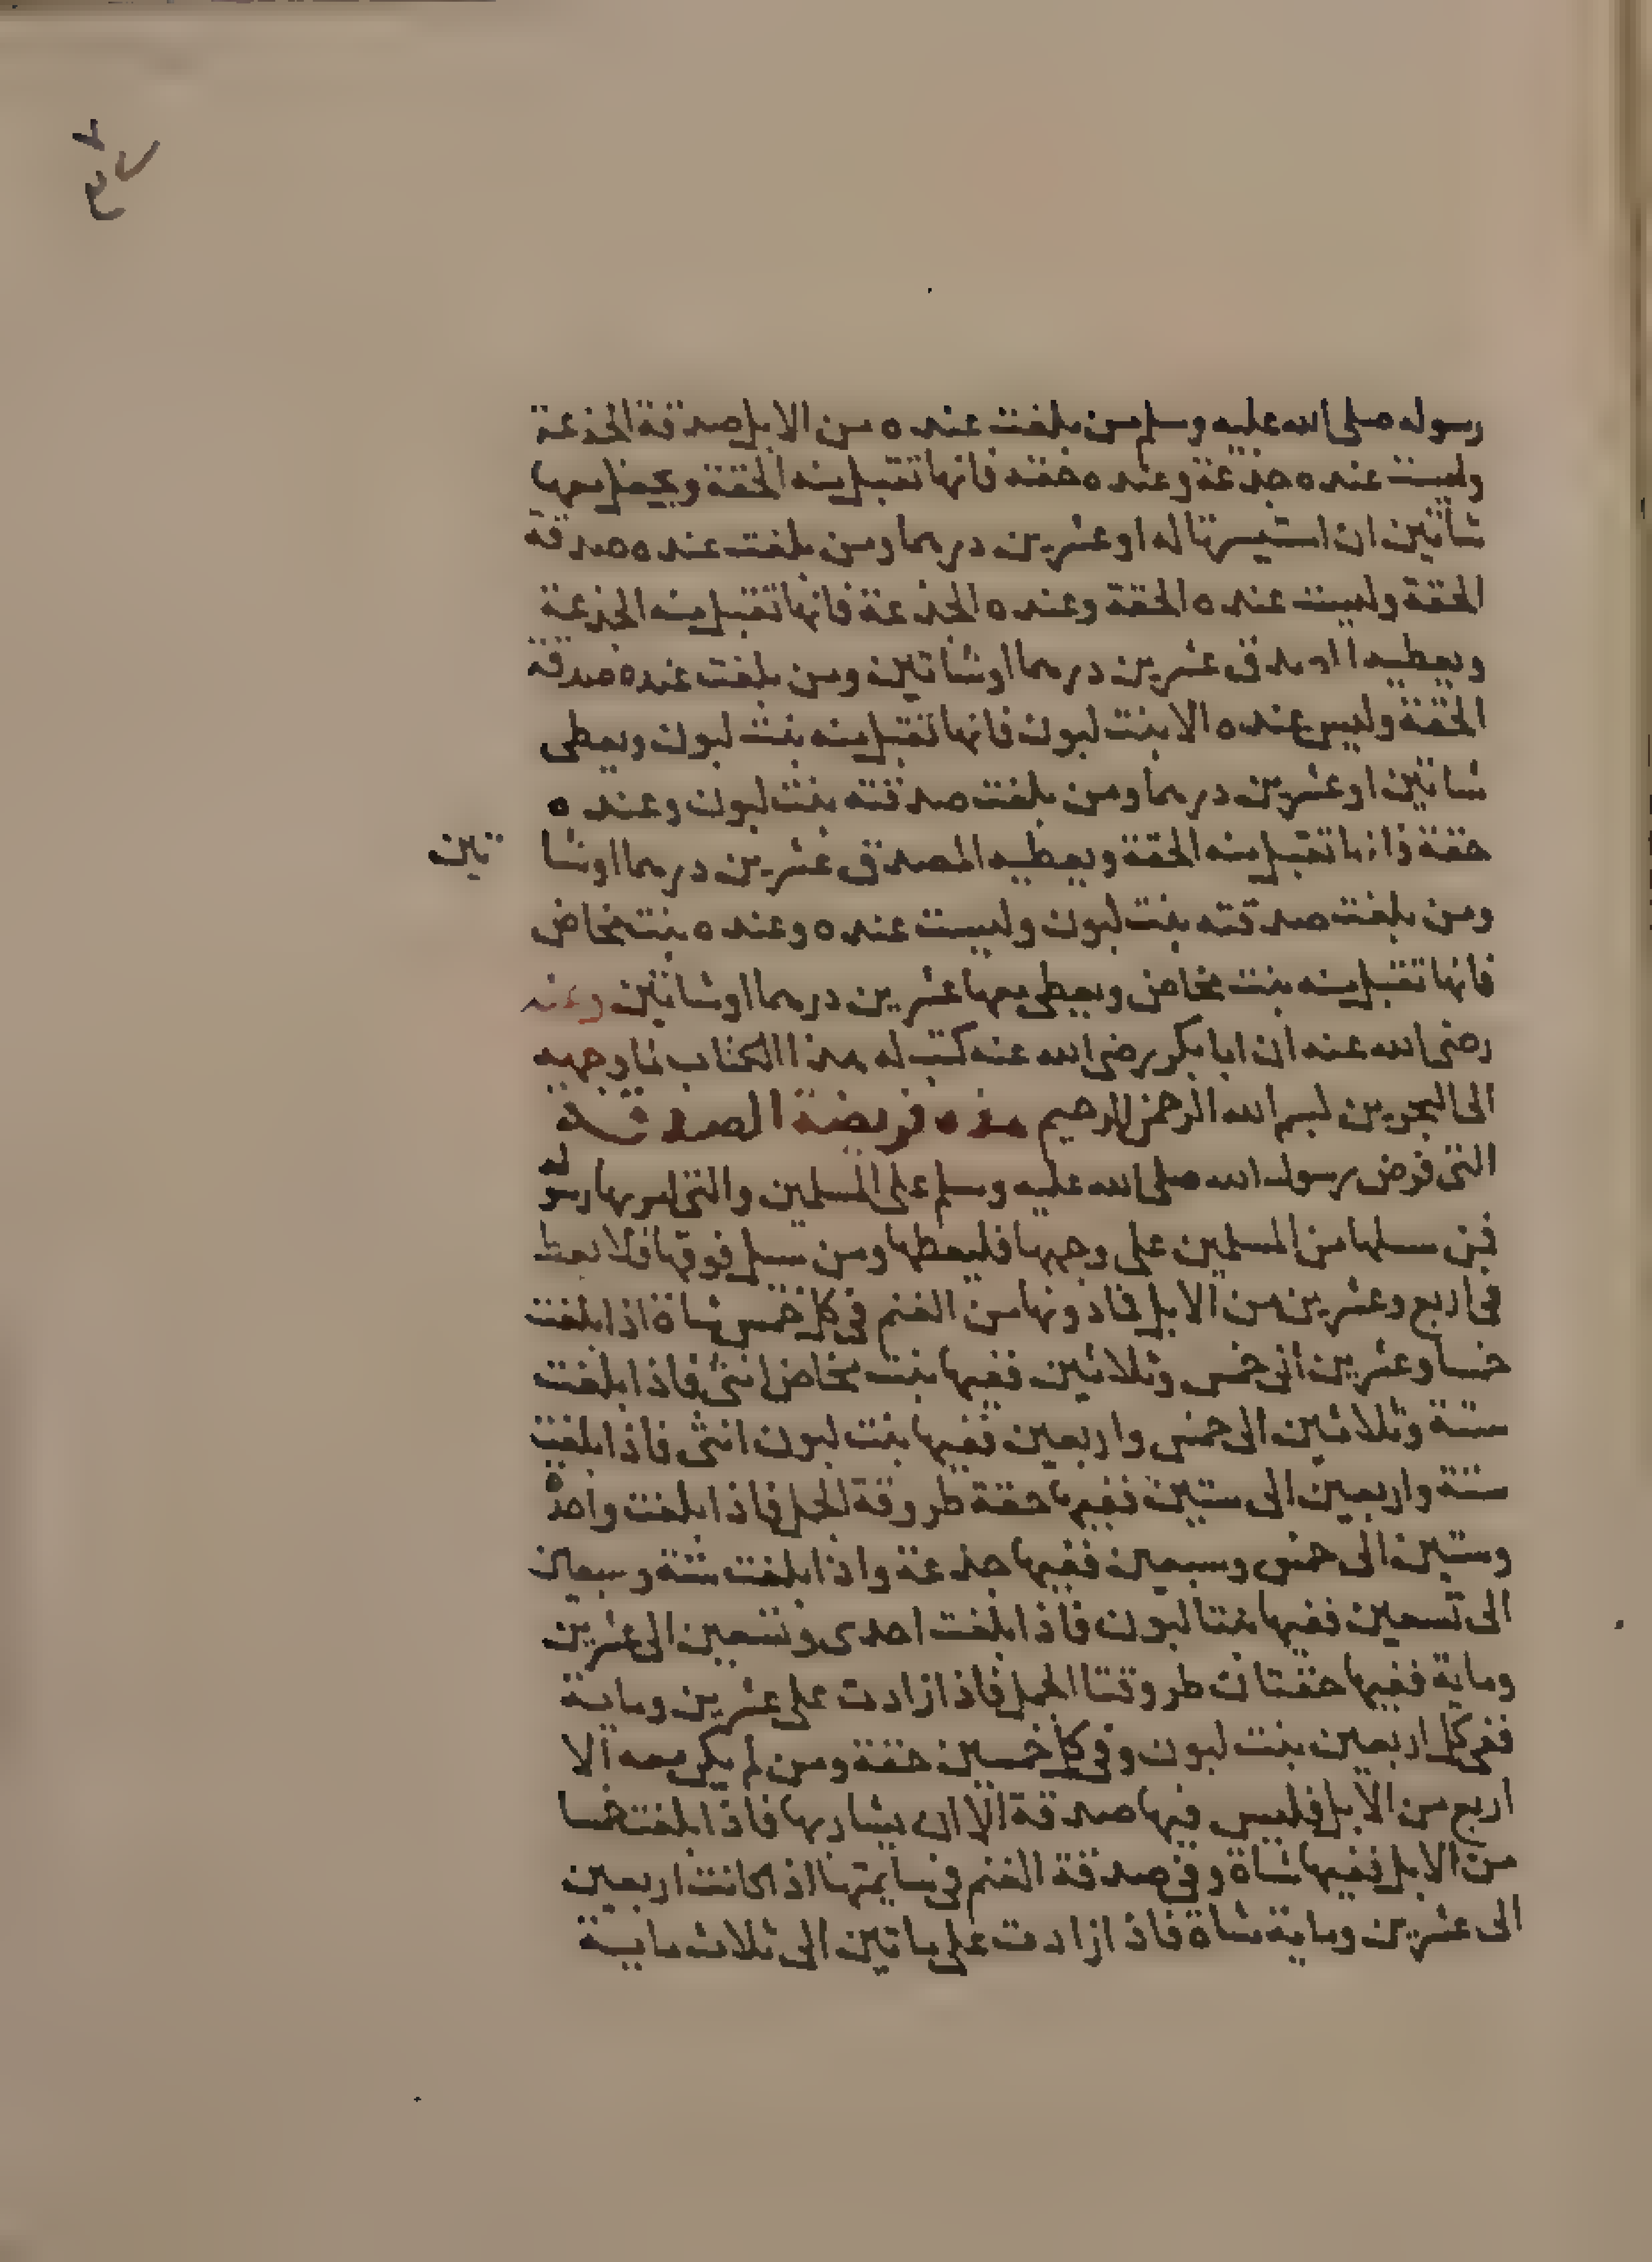 رسوله صلى الله عليه وسلم من بلغت عنده من الابل صدقة الجذعة
وليست عنده جذعة وعنده حقة فانها تقبل منه الحقة ويجعل معها
شاتين ان استيسرتا له او عشرين درهما ومن بلغت عنده صدقة
الحقة وليست عنده الحقة وعنده الجذعة فانها تقبل منه الجذعة
ويعطيه المصدق عشرين درهما او شاتين ومن بلغت عنده صدقة
الحقة وليس عنده الا بنت لبون فانها تقبل منه بنت لبون ويعطى
شاتين او عشرين درهما ومن بلغت صدقته بنت لبون وعنده
حقة فانها تقبل منه الحقة ويعطيه المصدق عشرين درهما او شا
تين
ومن بلغت صدقته بنت لبون وليست عنده وعنده بنت مخاض
فانها تقبل منه بنت مخاض ويعطى معها عشرين درهما او شاتين وعنه
رضى الله عنه ان ابا بكر رضى الله عنه كتب له هذا الكتاب لما وجهه
الى البحرين بسم الله الرحمن الرحيم هذه فريضة الصدقة
التى فرض رسول الله صلى الله عليه وسلم على المسلمين والتى امر بها رسوله
فمن سئلها من المسلمين على وجهها فليعطها ومن سئل فوقها فلا يعط
فى اربع وعشرين من الابل فما دونها من الغنم فى كل خمس شاة اذا بلغت
خمسا وعشرين الى خمس وثلاثين ففيها بنت مخاض انثى فاذا بلغت
ستة وثلاثين الى خمس واربعين ففيها بنت لبون انثى فاذا بلغت
ستة واربعين الى ستين ففيها حقة طروقة الجمل فاذا بلغت واحدة
وستين الى خمس وسبعين ففيها جذعة واذا بلغت ستة وسبعين
الى تسعين ففيها بنتا لبون فاذا بلغت احدى وتسعين الى عشرين
وماية ففيها حقتان طروقتا الجمل فاذا زادت على عشرين وماية
ففى كل اربعين بنت لبون وفى كل خمسين حقة ومن لم يكن معه الا
اربع من الابل فليس فيها صدقة الا ان يشا ربها فاذا بلغت خمسا
من الابل ففيها شاة وفى صدقة الغنم فى سايمتها اذا كانت اربعين
الى عشرين وماية شاة فاذا زادت على ماتين الى ثلاث ماية